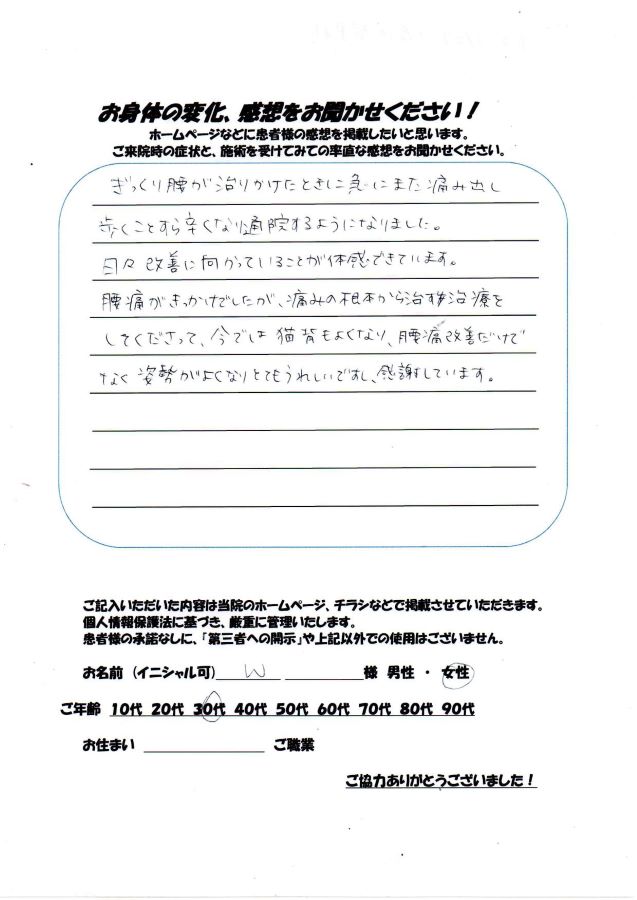 お身体の変化、感想をお聞かせください！
ホームページなどに患者様の感想を掲載したいと思います。
ご来院時の症状と、施術を受けてみての率直な感想をお聞かせください。
ぎっくり腰が治りかけたときに急にまた痛み出し
歩くことすら辛くなり通院するようになりました。
日々改善に向かっていることが体感できています。
腰痛がきっかけでしたが、痛みの根本から治す治療を
してくださって、今では猫背もよくなり、腰痛改善だけで
なく姿勢がよくなりとてもうれしいですし、感謝しています。
ご記入いただいた内容は当院のホームページ、チラシなどで掲載させていただきます。
個人情報保護法に基づき、厳重に管理いたします。
患者様の承諾なしに、「第三者への開示」や上記以外での使用はございません。
お名前（イニシャル可） W 様 男性 ・ 女性
ご年齢 10代 20代 30代 40代 50代 60代 70代 80代 90代
お住まい ご職業
ご協力ありがとうございました！